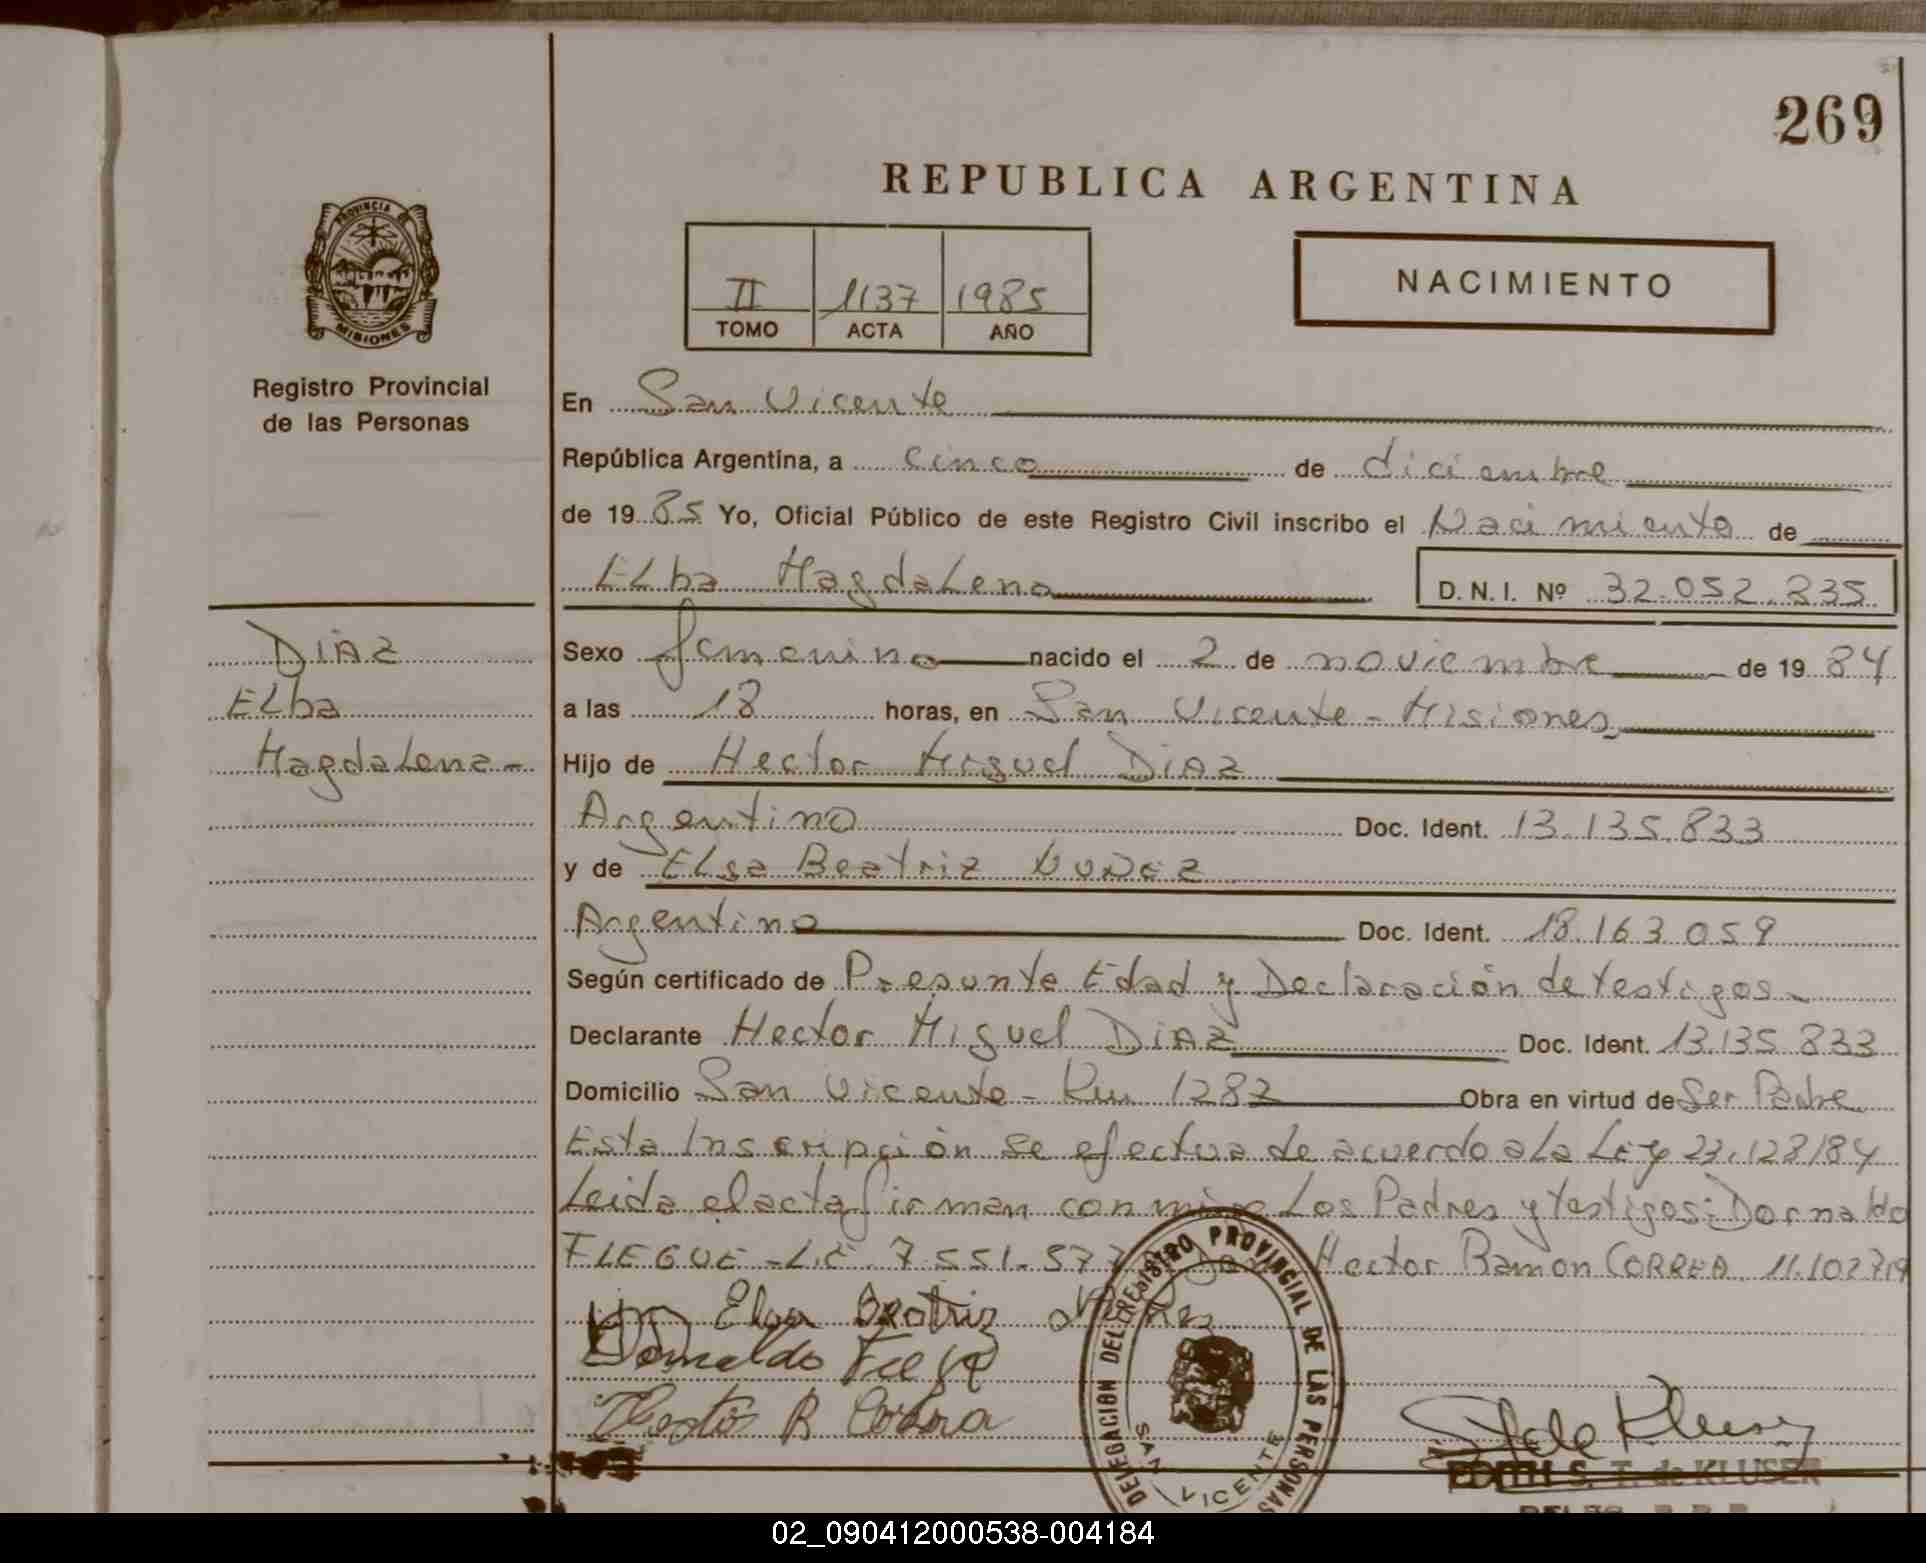 269
REPUBLICA ARGENTINA
PROVINCIA DE
MISIONES
Registro Provincial
de las Personas
II 1137 1985
TOMO ACTA AÑO
NACIMIENTO
En San Vicente
República Argentina, a cinco de diciembre
de 1985 Yo, Oficial Público de este Registro Civil inscribo el Nacimiento de
Elba Magdalena D.N.I. Nº 32.052.235
DIAZ
Elba
Magdalena-
Sexo femenino nacido el 2 de noviembre de 1984
a las 18 horas, en San Vicente - Misiones
Hijo de Hector Miguel DIAZ
Argentino Doc. Ident. 13.135.833
y de Elsa Beatriz NUÑEZ
Argentina Doc. Ident. 18.163.059
Según certificado de Presunta Edad y Declaración de testigos-
Declarante Hector Miguel DIAZ Doc. Ident. 13.135.833
Domicilio San Vicente - Km 1282 Obra en virtud de Ser Padre
Esta Inscripción se efectua de acuerdo a la Ley 23.128/84
Leida el acta firman con migo Los Padres y testigos: Dornaldo
FLEGUE - L.E. 7.551.577 Hector Ramon CORREA 11.102719
Elsa Beatriz Nuñez
Dornaldo
Hector R Correa
DELEGACION DEL REGISTRO PROVINCIAL DE LAS PERSONAS
SAN VICENTE
EDITH S. T. de KLUSER
02_090412000538-004184